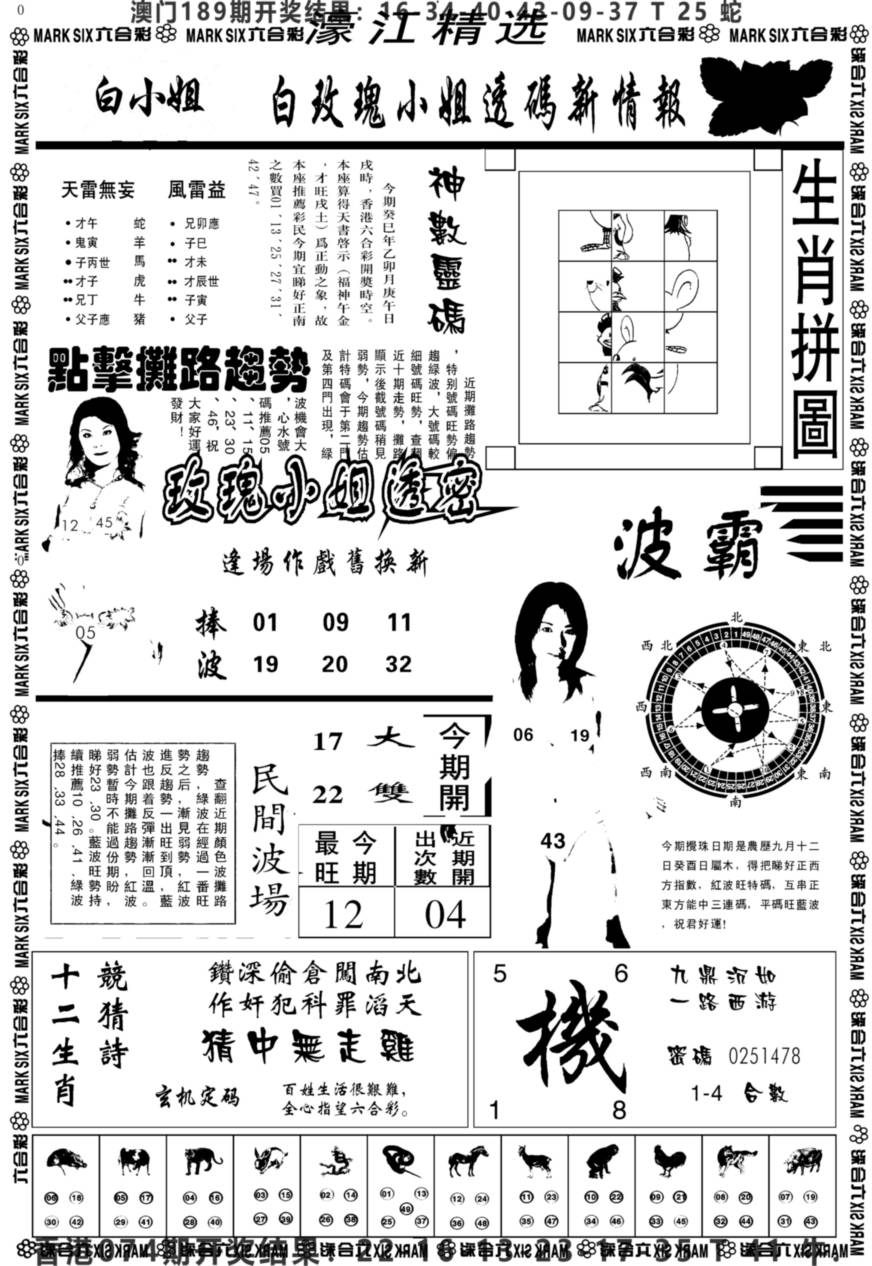 澳门189期开奖结果：16-34-40-43-09-37 T 25 蛇
MARK SIX六合彩 MARK SIX六合彩 濠江精选 MARK SIX六合彩 MARK SIX六合彩
白小姐 白玫瑰小姐透碼新情報
天雷無妄 風雷益
・才午 蛇 ・兄卯應
・鬼寅 羊 ・子巳
●子丙世 馬 ••才未
••才子 虎 ••才辰世
••兄丁 牛 ••子寅
・父子應 豬 ・父子
神數靈碼
今期癸巳年乙卯月庚午日
戌時，香港六合彩開獎時空。
本座算得天書啓示（福神午金
，才旺戌土）爲正動之象，故
本座推薦彩民今期宜睇好正南
之數買01′13′25′27′31′
42′47。
生肖拼圖
點擊攤路趨勢
近期攤路趨勢
，特別號碼旺勢偏
趨綠波，大號碼較
細號碼旺勢，查翻
近十期走勢，攤路
顯示後截號碼稍見
弱勢，今期趨勢估
計特碼會于第二門
及第四門出現，綠
波機會大
，心水號
碼推薦05
、11、15
、23、30
、46，祝
大家好運
發財！
12 45
05
玫瑰小姐透密
逢場作戲舊換新
捧波
01 09 11
19 20 32
波霸
06 19
43
北
西北 東北
西 東
西南 東南
南
今期攪珠日期是農歷九月十二
日癸酉日屬木，得把睇好正西
方指數，紅波旺特碼，互串正
東方能中三連碼，平碼旺藍波
，祝君好運!
查翻近期顏色攤路
趨勢，綠波在經過一波旺
勢之后，漸見弱勢，紅番藍
進反趨勢一出旺到頂，
波也跟着反彈漸漸回溫，
估計今期攤路趨勢紅波。
弱勢暫時不能過份期盼，
睇好23.30。藍波旺勢持
續推薦10.26.41，綠波
捧28.33.44。
民間波場
17 大
22 雙
今期開
最旺 今期
出次數 近期開
12 04
十二生肖
競猜詩
鑽深偷倉闖南北
作奸犯科罪滔天
猜中無走雞
玄机定码
百姓生活很艱難，
全心指望六合彩。
5 6
機
1 8
九鼎沉如
一路西游
密碼 0251478
1-4 合數
06 18 05 17 04 16 03 15 02 14 01 13 12 24 11 23 10 22 09 21 08 20 07 19
49
30 42 29 41 28 40 27 39 26 38 25 37 36 48 35 47 34 46 33 45 32 44 31 43
香港074期开奖结果：22-16-13-23-17-35 T 41 牛